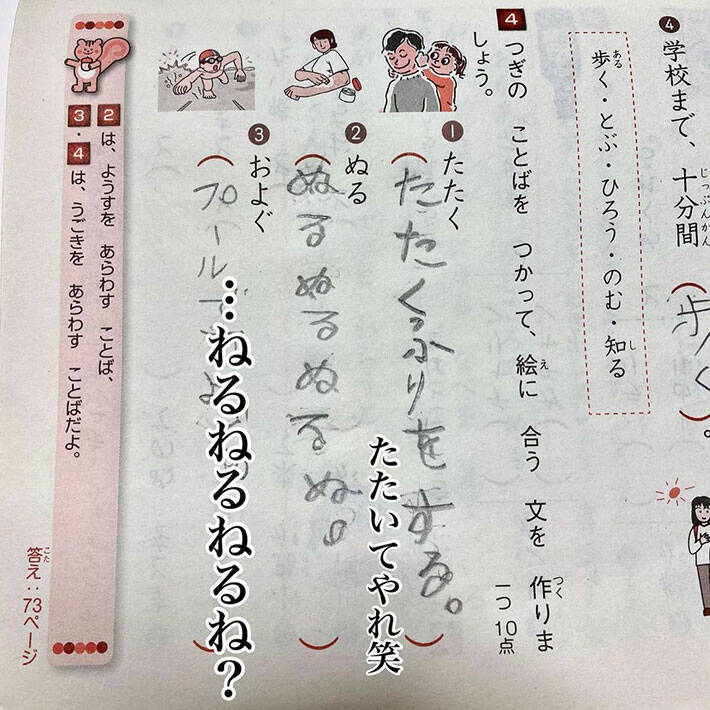 ❹ 学校まで、十分間（歩く）。
じっぷんかん
ある
歩く・とぶ・ひろう・のむ・知る
4 つぎの ことばを つかって、絵に 合う 文を 作りま
え
つく
しょう。
一つ10点
❶ たたく
（たたくふりをする。）
たたいてやれ笑
❷ ぬる
（ぬるぬるぬるぬ。）
❸ およぐ
（プール
…ねるねるねるねるね？
2 は、ようすを あらわす ことば、
3・4 は、うごきを あらわす ことばだよ。
こた
答え：73ページ